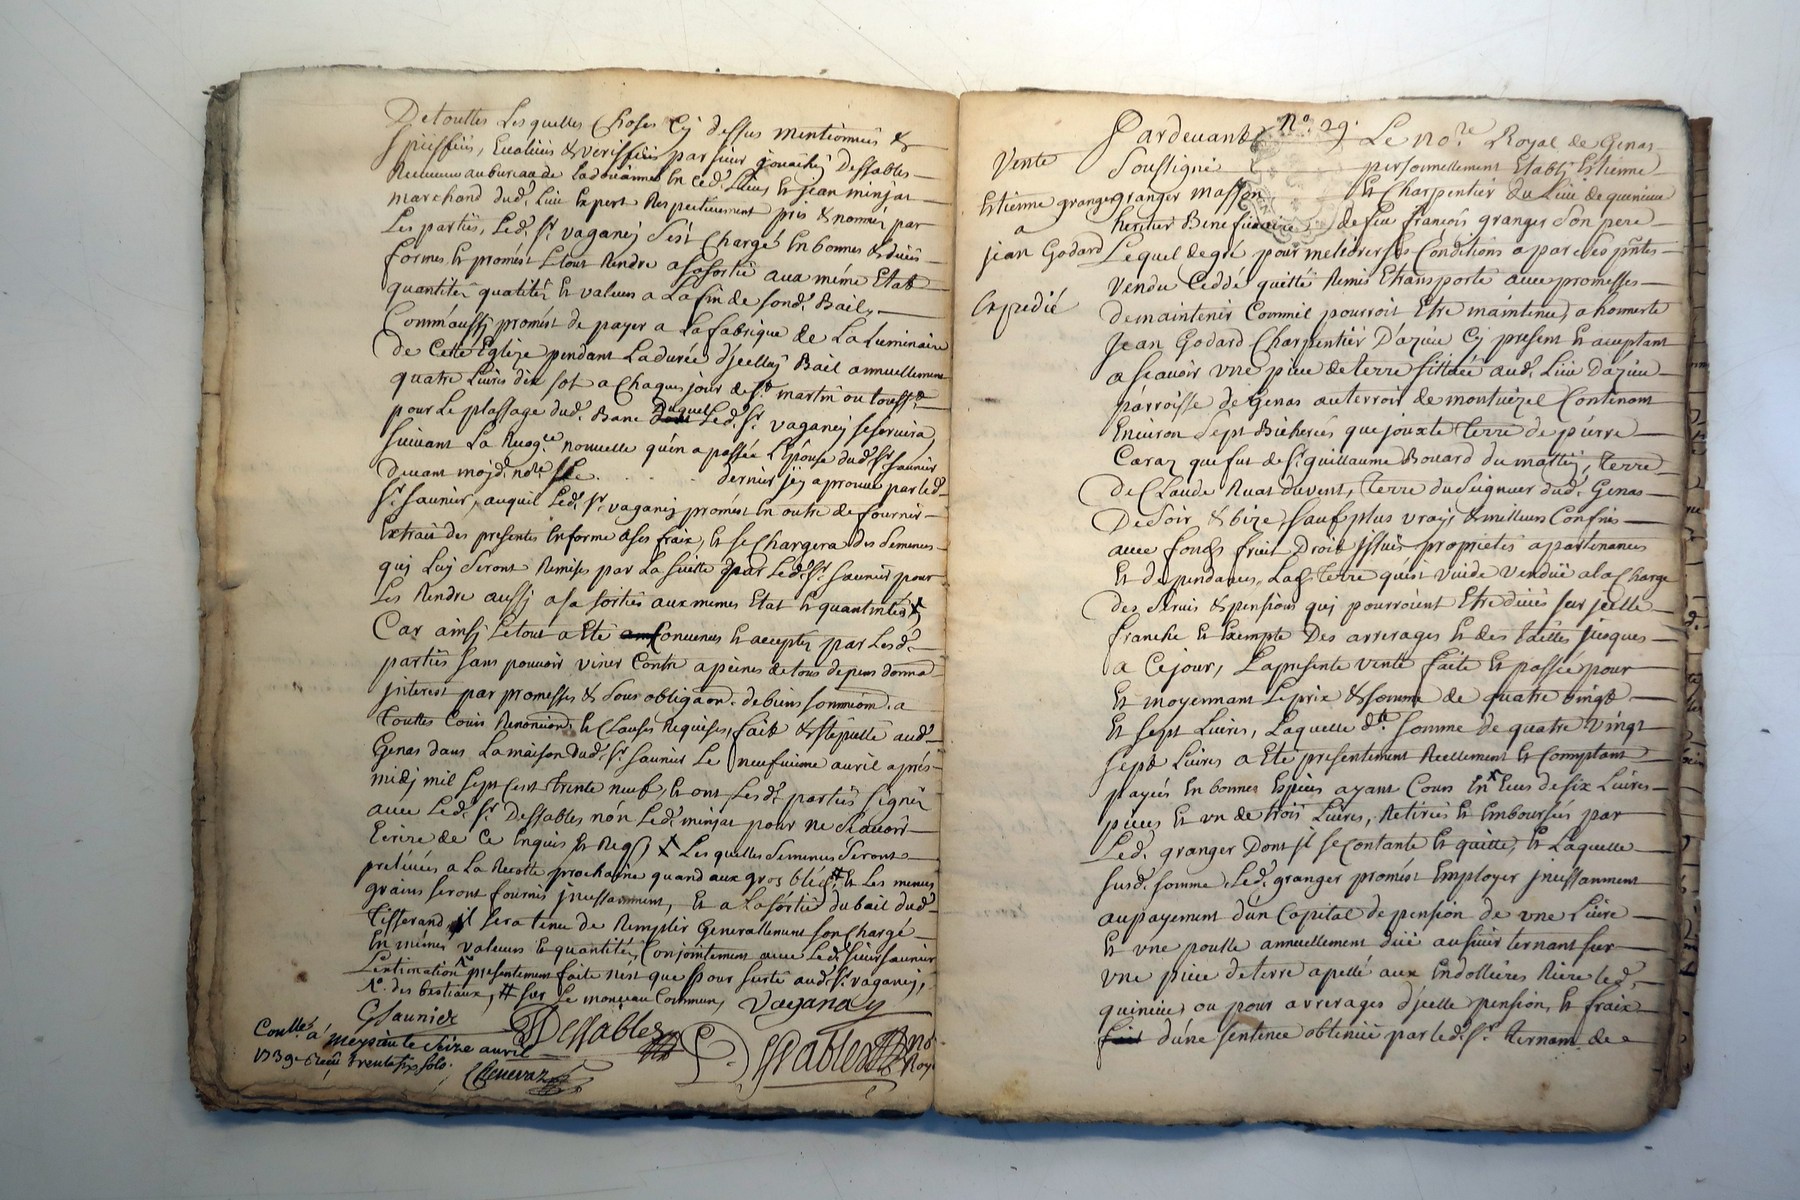 Detouttes Lesquelles Choses Cy dessus mentionnéés &
spéciffiéés, Evaluéés & veriffiéés par sieur Dessables
Receveur au bureau de la doüanne En Ced. Lieu Et jean minjat
marchand dud. Lieu Expert Respectivement pris & nommés par
Les partiës, Led. Sr. vaganey s'est Chargé En bonnes & duës
formes, Et promést Letout Rendre asasortië aux méme Etat
quantités qualités Et valeurs a La fin de sond. Bail,
Comm'aussy promést de payer a La fabrique de La Luminaire
de Cette Eglize pendant La durée d'jcelluy Bail annuellement
quatre Livres dix sol a Chaques jour de St. martin ou toussts.
pour Le plassage dud. Banc duquel Led. Sr. vaganey seservira,
suivant La Recogce nouvelle qu'en a passée L'épouse dud. Sr. saunier
Devant moyd. nore Le . . . . dernier jcy aprouvé par led.
Sr. saunier, auquil Led. Sr. vaganey promést En outre de fournir
Extrait des presentes Enforme ases fraix, Et seChargera des semences
quy Luy seront Remises par La suitte par Led. Sr. saunier pour
Les Rendre aussy asa sortiës aux mémes Etat Et quantitéés X
Car ainsy Letout a Eté Convenus Et accepté par Lesd.
partiës sans pouvoir venir Contre apeines de tous depens domma
jnterest par promesses & sous obligaon. de biens soumission. a
touttes Cours Renonciaon. Et Clauses Requises, fait & stipullé aud.
Genas dans La maison dud. Sr. saunier Le neufvieme avril aprés
midy mil sept cent trente neuf, Et ont Lesd. partiës signés
avec Led. Sr. Dessables nón Led. minjat pour ne sçavoir
Ecrire de Ce Enquis Et Reqs X Les quelles semences seront
prelevéés a La Recolte prochaine quand aux gros bléd, # Et Les menus
grains seront fournis jncessamment, Et a La sortië du bail dud.
Tisserand il sera tenu de Remplir Generallement son Chargé
En mémes valeurs Et quantités, Conjointement avec Led. sieur saunier
L'estimation presentement faite n'ést que pour surté aud. Sr. vaganey,
des bestiaux, # sur Le monceau Commun, Vaganay
GSaunier
Dessables
Dessables no
Roy
Conllé. á meysiúe le seize avril
1739. Reçu trente six sols.
Chenevaz
No. 29.
Pardevant Le nore. Royal de Genas
soussigné personnellement Etably Estienne
granger masson Et Charpentier du Lieu de quinieu
heritier Beneficiaire de feu françois granger son pere
Lequel de gré pour meliorer ses Conditions a par Ces pntes
vendu Ceddé quitté Remis Etransporté avec promesses
demaintenir Comm'il pourroit Etre maintenu, a honneste
jean Godard Charpentier D'azieu Cy present Et aceptant
a sçavoir vne piece de terre sittuéé aud. Lieu D'azieu
parroisse de Genas auterroir de montvézel Contenant
Environ sept Bicheréés que jouxte terre de piérre
Caraz que fut de Sr. guillaume Bouard du mattin, terre
De Claude Ruat du vent, terre duseigneur dud. Genas
De soir & bize, sauf plus vrays, & meilleurs Confins
avec fonds fruit Droit jssuës proprietés apartenances
Et dependances, Lad. terre qu'est vuide venduë ala Charge
des servis & pensions quy pourroient Etre duës sur jcelle
franche Et Exempte Des arrerages Et des tailles jusques
a Cejour, La presente vente faite Et passéé pour
Et moyennant Le prix & somme de quatre vingt
Et sept Livres, Laquelle dte. somme de quatre vingt
sept Livres a Eté presentement Reellement Et Comptant
payéés En bonnes Espéces ayant Cours En Ecus desix Livres
pieces Et vn de trois Livres, Retiréés Et Emboursées par
Led. granger Dont jl se Contante Et quitte, Et Laquelle
susd. somme Led. granger promést Employer jncessanment
au payement d'un Capital de pension de vne Livre
Et vne poulle annuellement düe au sieur ternant sur
vne piece de terre apellé aux Endolliéres Riere led.
quinieu, ou pour arrerages d'jcelle pension, Et fraix
d'une sentence obtenuë par led. Sr. ternant de
Vente
Estienne granger
a
jean Godard
Expedié